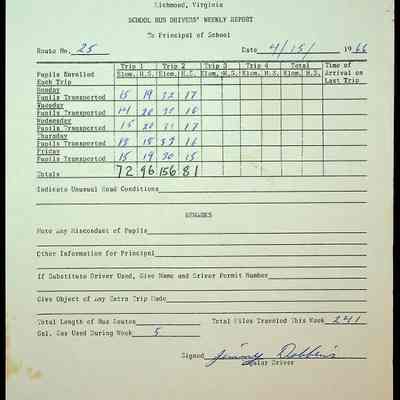 Richmond, Virginia
SCHOOL BUS DRIVERS' WEEKLY REPORT
To Principal of School
Route No. 25 Date 4/15/ 1966
Trip 1 Trip 2 Trip 3 Trip 4 Total Time of
Pupils Enrolled Elem. H.S. Elem. H.S. Elem. H.S. Elem. H.S. Elem. H.S. Arrival on
Each Trip Last Trip
Monday
Pupils Transported 15 19 32 17
Tuesday
Pupils Transported 14 20 16
Wednesday
Pupils Transported 15 20 17
Thursday
Pupils Transported 15 37 16
Friday
Pupils Transported 15 19 30 15
Totals 72 96 156 81
Indicate Unusual Road Conditions
REMARKS
Note Any Misconduct of Pupils
Other Information for Principal
If Substitute Driver Used, Give Name and Driver Permit Number
Give Object of Any Extra Trip Made
Total Length of Bus Routes Total Miles Traveled This Week 241
Gal. Gas Used During Week 5
Signed Jimmy Dobbins
Regular Driver